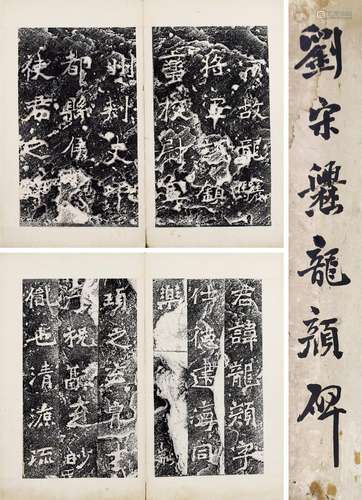 劉宋爨龍顏碑
宋故龍驤
將軍護鎮
蠻校尉寧
州刺史邛
都縣侯
使君之
君諱龍顏字
仕德建寧同
樂
頊之玄冑才
子祝融之眇
胤也清源流